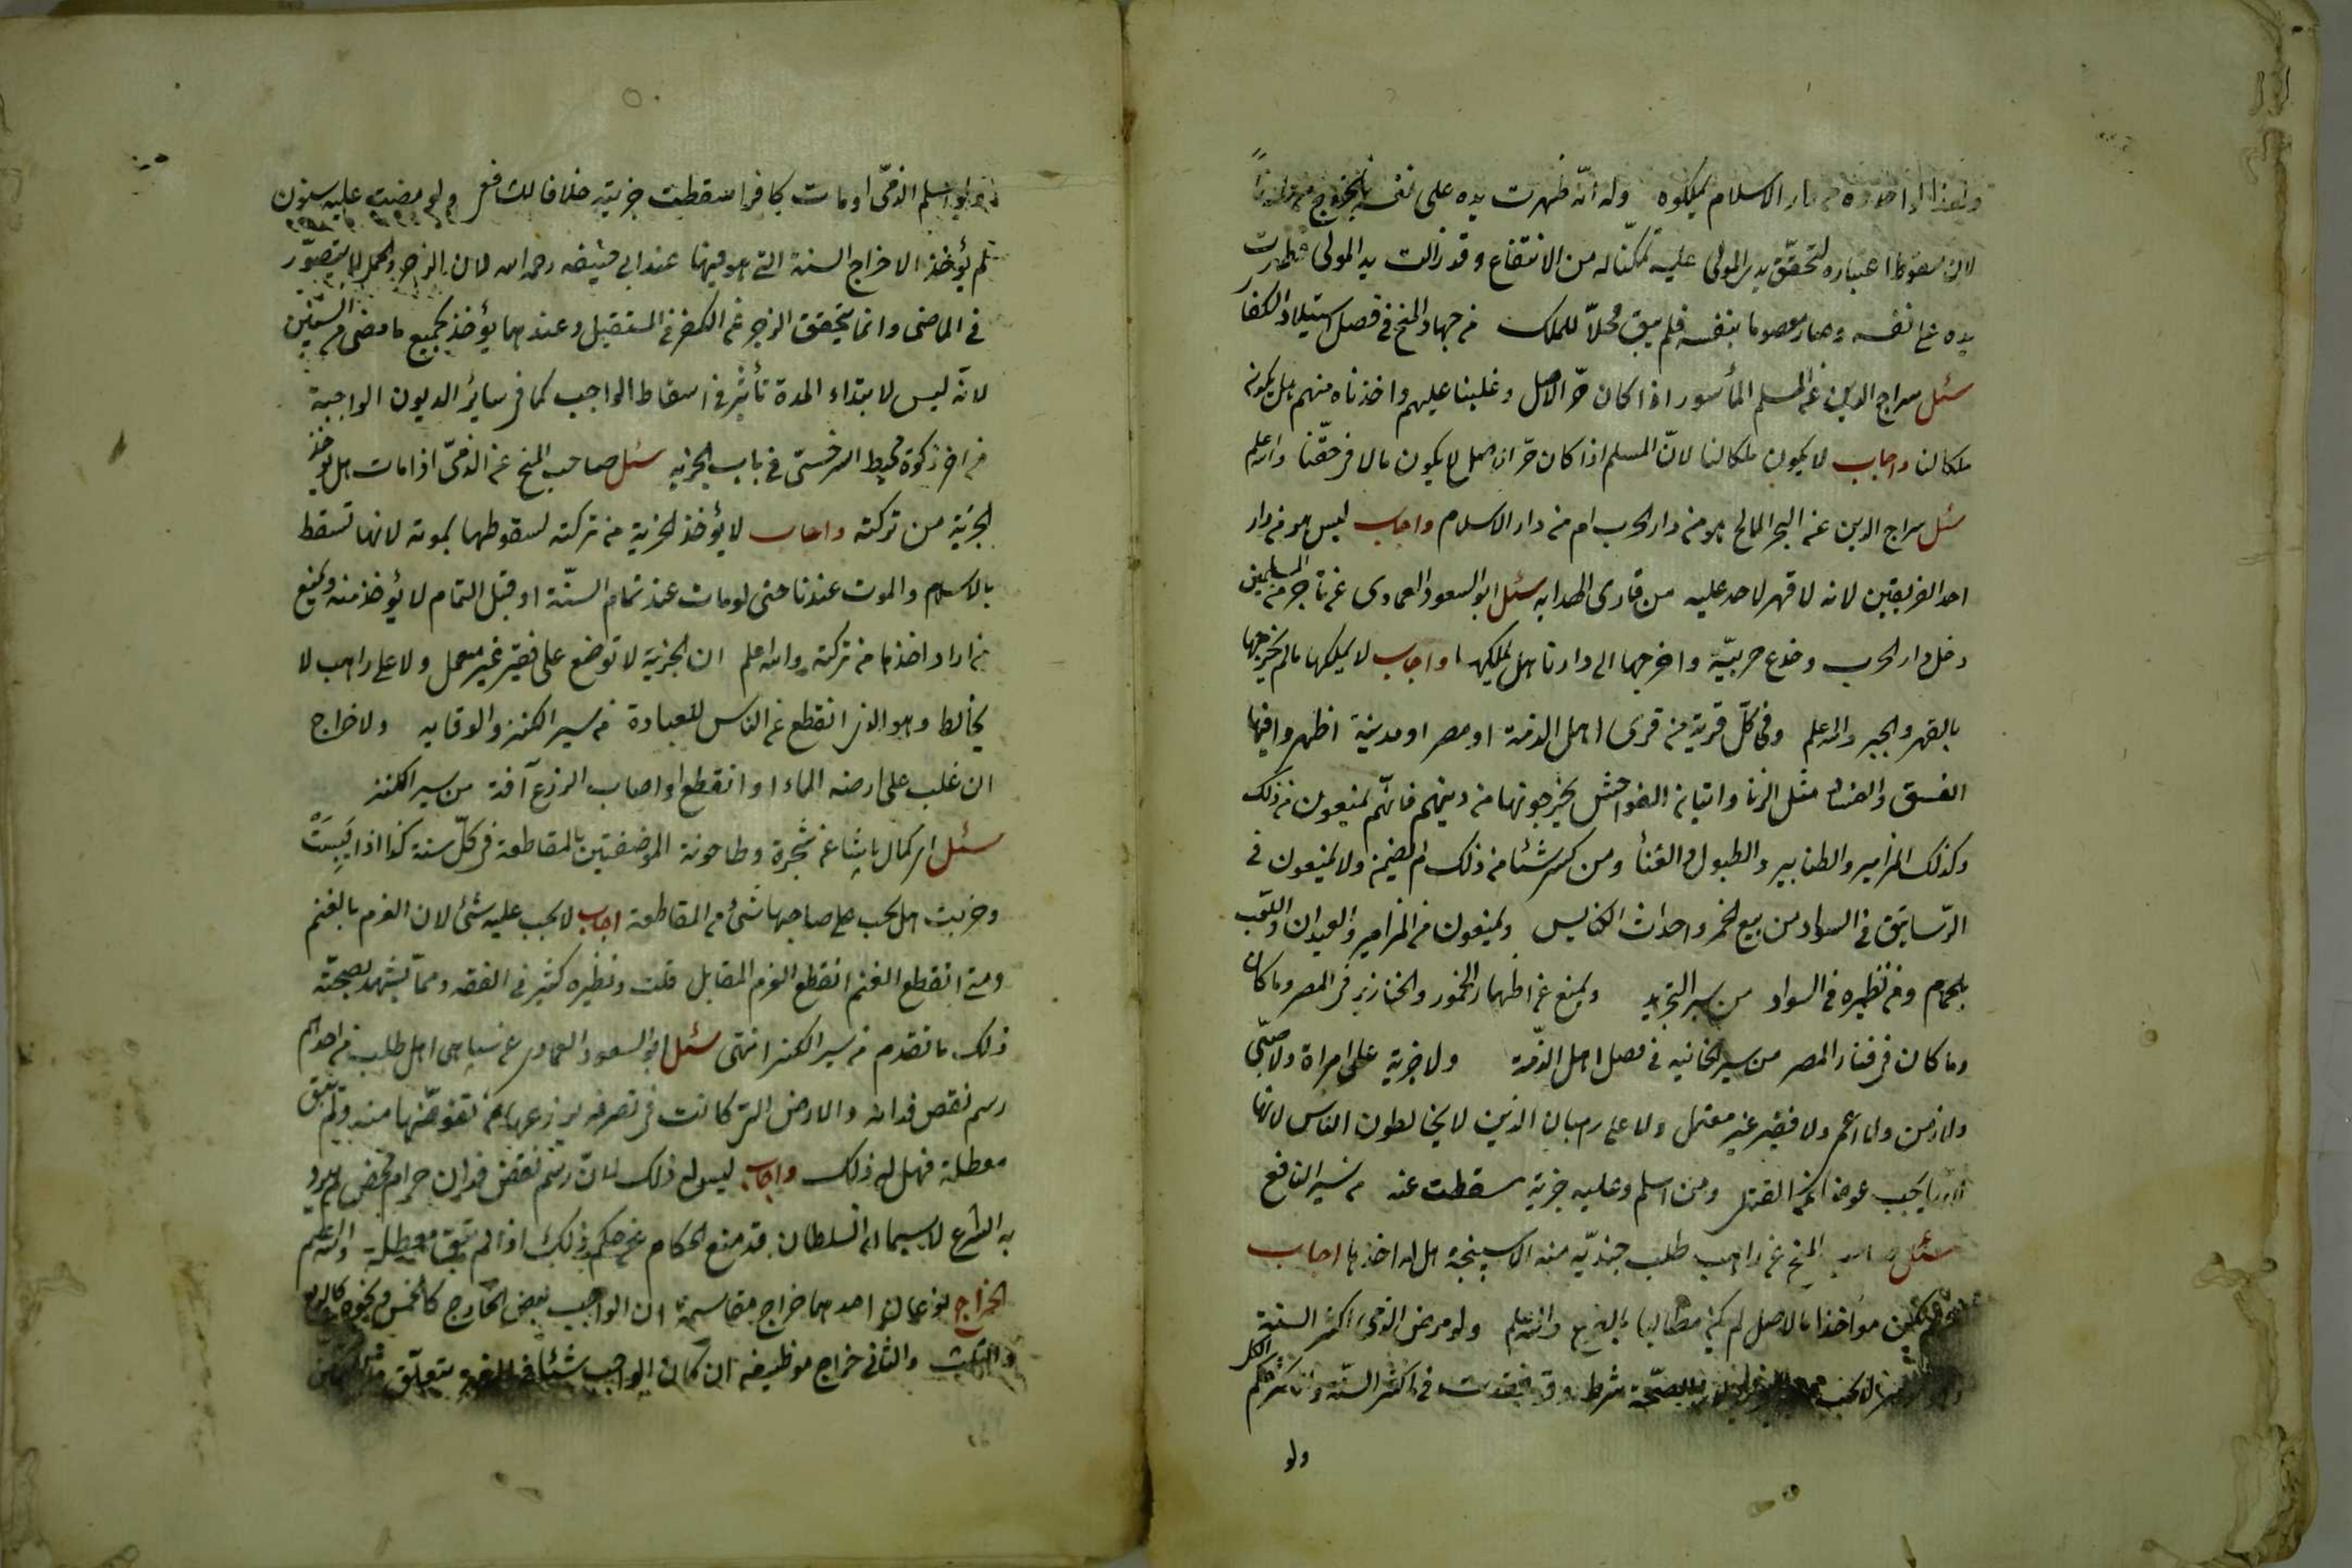 الاسلام يملكوه وله انّه ظهرت يده على نفسه بالخروج من دارنا
لان سقوط اعتباره لتحقّق يد المولى عليه تمكّنا له من الانتفاع وقد زالت يد المولى فظهرت
يده على نفسه وصار معصوما بنفسه فلم يبق محلاّ للملك من جهاد المنح في فصل استيلاء الكفار
سئل سراج الدين عن المسلم المأسور اذا كان حرّ الاصل وغلبنا عليهم واخذناه منهم هل يكون
ملكا لنا واجاب لا يكون ملكا لنا لانّ المسلم اذا كان حرّ الاصل لا يكون مالا في حقّنا والله اعلم
سئل سراج الدين عن البحر المالح هو من دار الحرب ام من دار الاسلام واجاب ليس هو من دار
احد الفريقين لانه لا قهر لاحد عليه من قارى الهدايه سئل ابو السعود العمادى عن تاجر من المسلمين
دخل دار الحرب وخدع حربيّة واخرجها الى دارنا هل يملكها واجاب لا يملكها ما لم يخرجها
بالقهر والجبر والله اعلم وفى كلّ قرية من قرى اهل الذمة او مصر او مدينة اظهروا فيها
الفسق والفساد مثل الزنا واتيان الفواحش يخرجونها من دينهم فانّهم يمنعون من ذلك
وكذلك المزامير والطنابير والطبول والغنأ ومن كسر شئا من ذلك لم يضمن ولا يمنعون فى
الرّساتيق فى السواد من بيع الخمر واحداث الكنايس ويمنعون من المزامير والعيدان واللّعب
بالحمام ومن نظيره فى السواد من سير التجريد ويمنع عن اظهار الخمور والخنازير فى المصر وما كان
وما كان فى فناء المصر من سير الخانيه فى فصل اهل الذمّة ولا جزية على امراة ولا صبّى
ولا زمن ولا اعمى ولا فقير غير معتمل ولا على رهبان الذين لا يخالطون الناس لانها
يجب عوضا عن القتل ومن اسلم وعليه جزية سقطت عنه من سير النافع
سئل صاحب المنح عن راهب طلب جنديّه منه الاسبنجه هل له اخذها اجاب
يكن مواخذا بالاصل لم يكن مطالبا بالفرع والله اعلم ولو مرض الذمى اكثر السنة
لا يجب الصحّة شرط وقد فقدت فى اكثر السنّة وللاكثر حكم الكل
ولو
ولو اسلم الذمّى او مات كافرا سقطت جزيته خلافا للشافعى ولو مضت عليه سنون
لم يؤخذ الا خراج السنة التى هو فيها عند ابى حنيفه رحمه الله لان الزجر والحمل لا يتصوّر
فى الماضى وانما يتحقق الزجر عن الكفر فى المستقبل وعندهما يؤخذ بجميع ما مضى من السّنين
لانّه ليس لابتداء المدة تأثير فى اسقاط الواجب كما فى سائر الديون الواجبة
من اخر زكوة محيط السرخسى فى باب الجزيه سئل صاحب المنح عن الذمّى اذا مات هل يوخذ
الجزية من تركته واجاب لا يؤخذ الجزية من تركته لسقوطها بموته لانها تسقط
بالاسلام والموت عندنا حتى لو مات عند تمام السنّة او قبل التمام لا يؤخذ منه ويمنع
من اراد اخذها من تركته والله اعلم ان الجزية لا توضع على فقير غير معمل ولا على راهب لا
يخالط وهو الذى انقطع عن الناس للعبادة من سير الكنز والوقايه ولا خراج
ان غلب على ارضه الماء او انقطع او اصاب الزرع آفة من سير الكنز
سئل ابن كمال پاشا عن شجرة وطاحونة الموضفتين بالمقاطعة فى كلّ سنة كذا اذا يَبِسَتْ
وخربت هل يجب على صاحبها شئ من المقاطعة اجاب لا يجب عليه شئ لان الغرم بالغنم
ومتى انقطع الغنم انقطع الغرم المقابل قلت ونظيره كثير فى الفقه وممّا يشهد بصحّته
ذلك ما تقدم من سير الكنز انتهى سئل ابو السعود العمادى عن سپاهى هل طلب من احدهم
رسم نقص فدان والارض التى كانت فى تصرفه لم يزرعها
معطلة فهل له ذلك واجاب ليس له ذلك لانّ رسم نقص فدان حرام محض لم يرد
به الشرع لا سيما ان السلطان قد منع الحكام عن حكم ذلك اذا لم تبق معطلة والله اعلم
الخراج نوعان احدهما خراج مقاسمة ان الواجب بعض الخارج كالخمس ونحوه كالربع
والثلث والثانى خراج موظيفه ان كان الواجب شيئا فى الذمه يتعلّق